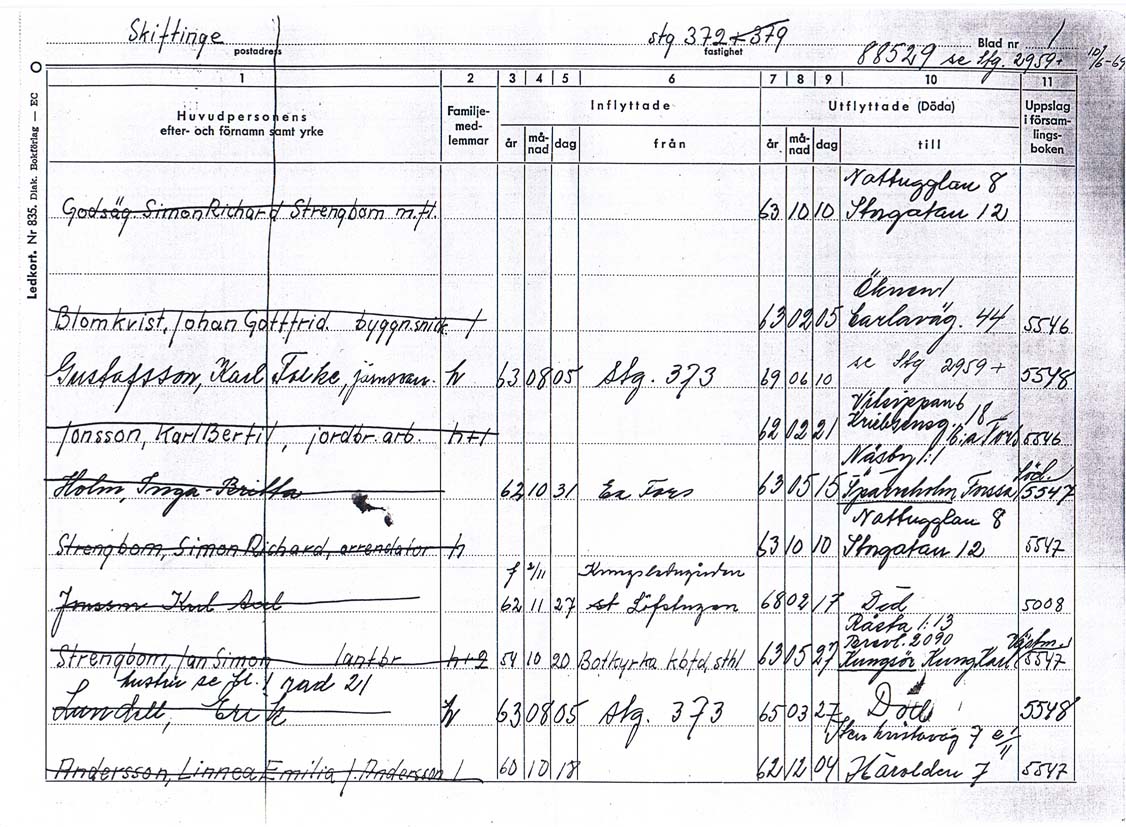 Skiftinge
postadress
stg 372+379
fastighet
88529 se stg. 2959+
Blad nr 1
10/6-69
Ledkort. Nr 835. Diak. Bokförlag — EC
1 2 3 4 5 6 7 8 9 10 11
Huvudpersonens
efter- och förnamn samt yrke
Familje-
med-
lemmar
Inflyttade
år må-
nad dag från
Utflyttade (Döda)
år må-
nad dag till
Uppslag
i försam-
lings-
boken
Nattugglan 8
Godsäg Simon Richard Strengbom m.fl. 63 10 10 Storgatan 12
Öknen 1
Blomkvist, Johan Gottfrid. byggn.snick. 1 63 02 05 Carlaväg. 44 5546
Gustafsson, Karl Folke, h 63 08 05 Stg. 373 69 06 10 se Stg 2959+ 5548
Jonsson, Karl Bertil, jordbr. arb. h+1 62 02 21 18 5546
Näsby 1:1
Holm, Inga-Britta 62 10 31 Ea Fors 63 05 15 Sparreholm 5547
Nattugglan 8
Strengbom, Simon Richard, arrendator h 63 10 10 Storgatan 12 5547
f 2/11
62 11 27 68 02 17 Död 5008
Råsta 1:13
2090
Strengbom, Jan Simon lantbr h+2 54 10 20 Botkyrka kbfd, sthl 63 05 27 Kungsör 5547
hustru se bl. 1 rad 21
Lundell, Erik h 63 08 05 Stg. 373 65 03 27 Död 5548
7
Andersson, Linnea Emilia f. Andersson 1 60 10 18 62 12 04 Härolden 7 5547